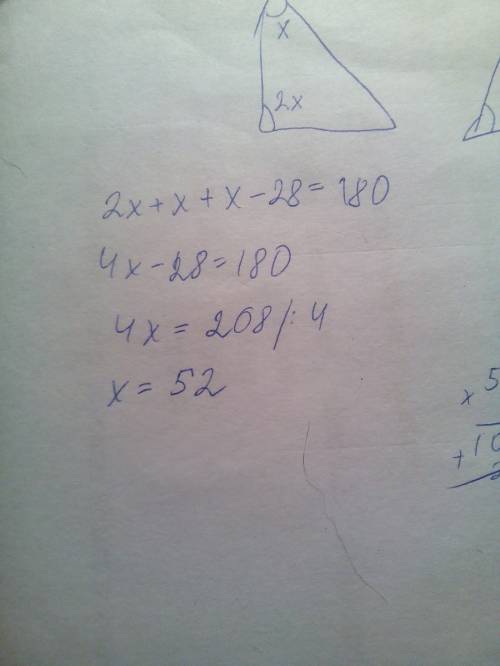 x
2x
2x + x + x - 28 = 180
4x - 28 = 180
4x = 208 /: 4
x = 52
x 5
+ 10